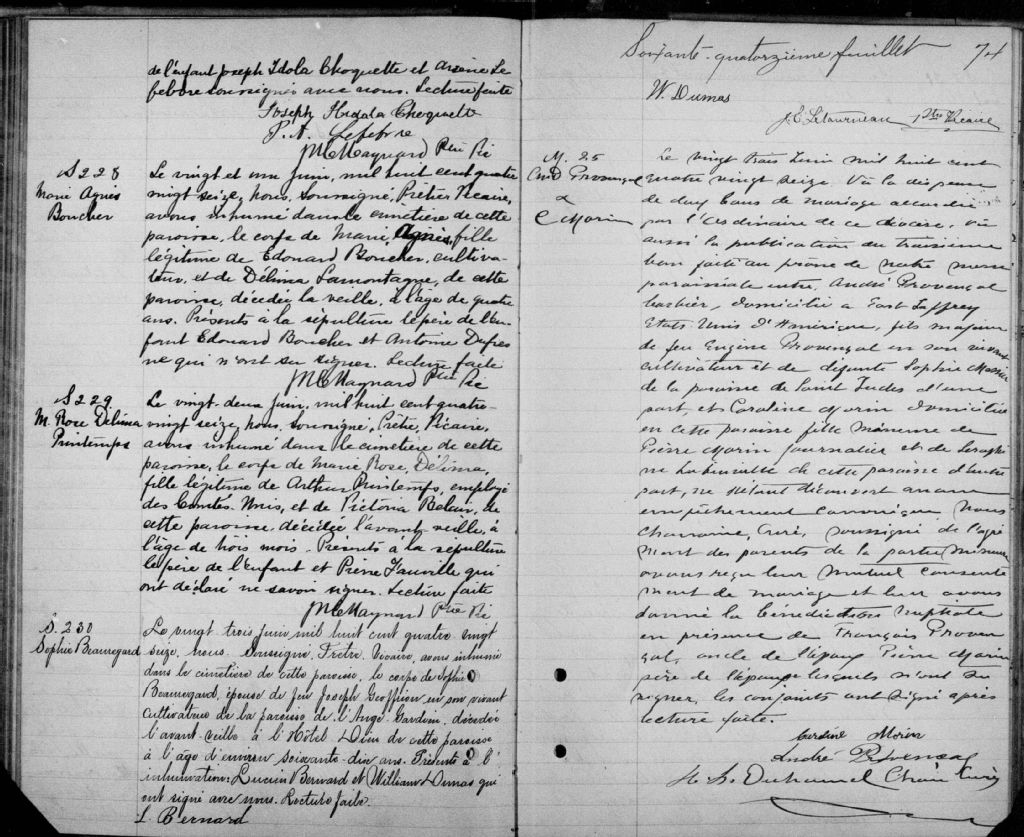 de l'enfant Joseph Idola Choquette et Arsène Le
febvre soussignés avec nous. Lecture faite
Joseph Hidala Choquette
P. A. Lefebvre
J M C Maynard Ptre Vic
S 228
Marie Agnès
Boucher
Le vingt et un Juin, mil huit cent quatre
vingt seize, nous, soussigné, Prêtre, Vicaire,
avons inhumé dans le cimetière de cette
paroisse, le corps de Marie Agnès, fille
légitime de Edouard Boucher, cultiva-
teur, et de Délima Lamontagne, de cette
paroisse, décédée la veille, à l'âge de quatre
ans. Présents à la sépulture le père de l'en-
fant Edouard Boucher et Antoine Dufres
ne qui n'ont su signer. Lecture faite
J M C Maynard Ptre Vic
S 229
M. Rose Délima
Printemps
Le vingt-deux Juin, mil huit cent quatre-
vingt seize, nous, soussigné, Prêtre, Vicaire,
avons inhumé dans le cimetière de cette
paroisse, le corps de Marie, Rose, Délima,
fille légitime de Arthur Printemps, employé
des Comtés-Unis, et de Victoria Belair, de
cette paroisse, décédée l'avant-veille, à
l'âge de trois mois. Présents à la sépulture
le père de l'enfant et Pierre Fauville qui
ont déclaré ne savoir signer. Lecture faite
J M C Maynard Ptre Vic
S. 230
Sophie Beauregard
Le vingt-trois Juin mil huit cent quatre vingt
seize, nous Soussigné, Prêtre, Vicaire, avons inhumé
dans le cimetière de cette paroisse, le corps de Sophie
Beauregard, épouse de feu Joseph Geoffrion en son vivant
cultivateur de la paroisse de l'Ange-Gardien, décédée
l'avant-veille à l'Hôtel-Dieu de cette paroisse
à l'âge d'environ soixante-dix ans. Présents à l'
inhumation: Lucien Bernard et William Dumas qui
ont signé avec nous. Lecture faite.
L Bernard
Soixante-quatorzième feuillet 74
W. Dumas
J. E. Letourneau Ptre Vicaire
M. 25
And Provençal
&
C Morin
Le vingt trois Juin mil huit cent
quatre vingt seize. Vu la dispense
de deux bans de mariage accordée
par l'Ordinaire de ce diocèse, vu
aussi la publication du troisième
ban faite au prône de notre messe
paroissiale entre André Provençal
barbier, domicilié à East Jaffrey
Etats-Unis d'Amérique, fils majeur
de feu Eugène Provençal en son vivant
cultivateur et de défunte Sophie Massé
de la paroisse de Saint Judes d'une
part, et Caroline Morin domiciliée
en cette paroisse fille mineure de
Pierre Morin journalier et de Séraphi
ne de cette paroisse d'autre
part, ne s'étant découvert aucun
empêchement canonique Nous
chanoine, Curé, soussigné de l'agré
ment des parents de la partie mineure
avons reçu leur mutuel consente
ment de mariage et leur avons
donné la bénédiction nuptiale
en présence de François Proven
çal, oncle de l'époux Pierre Morin
père de l'épouse lesquels n'ont su
signer, les conjoints ont signé après
lecture faite.
Caroline Morin
André Provençal
Duhamel Chan Curé